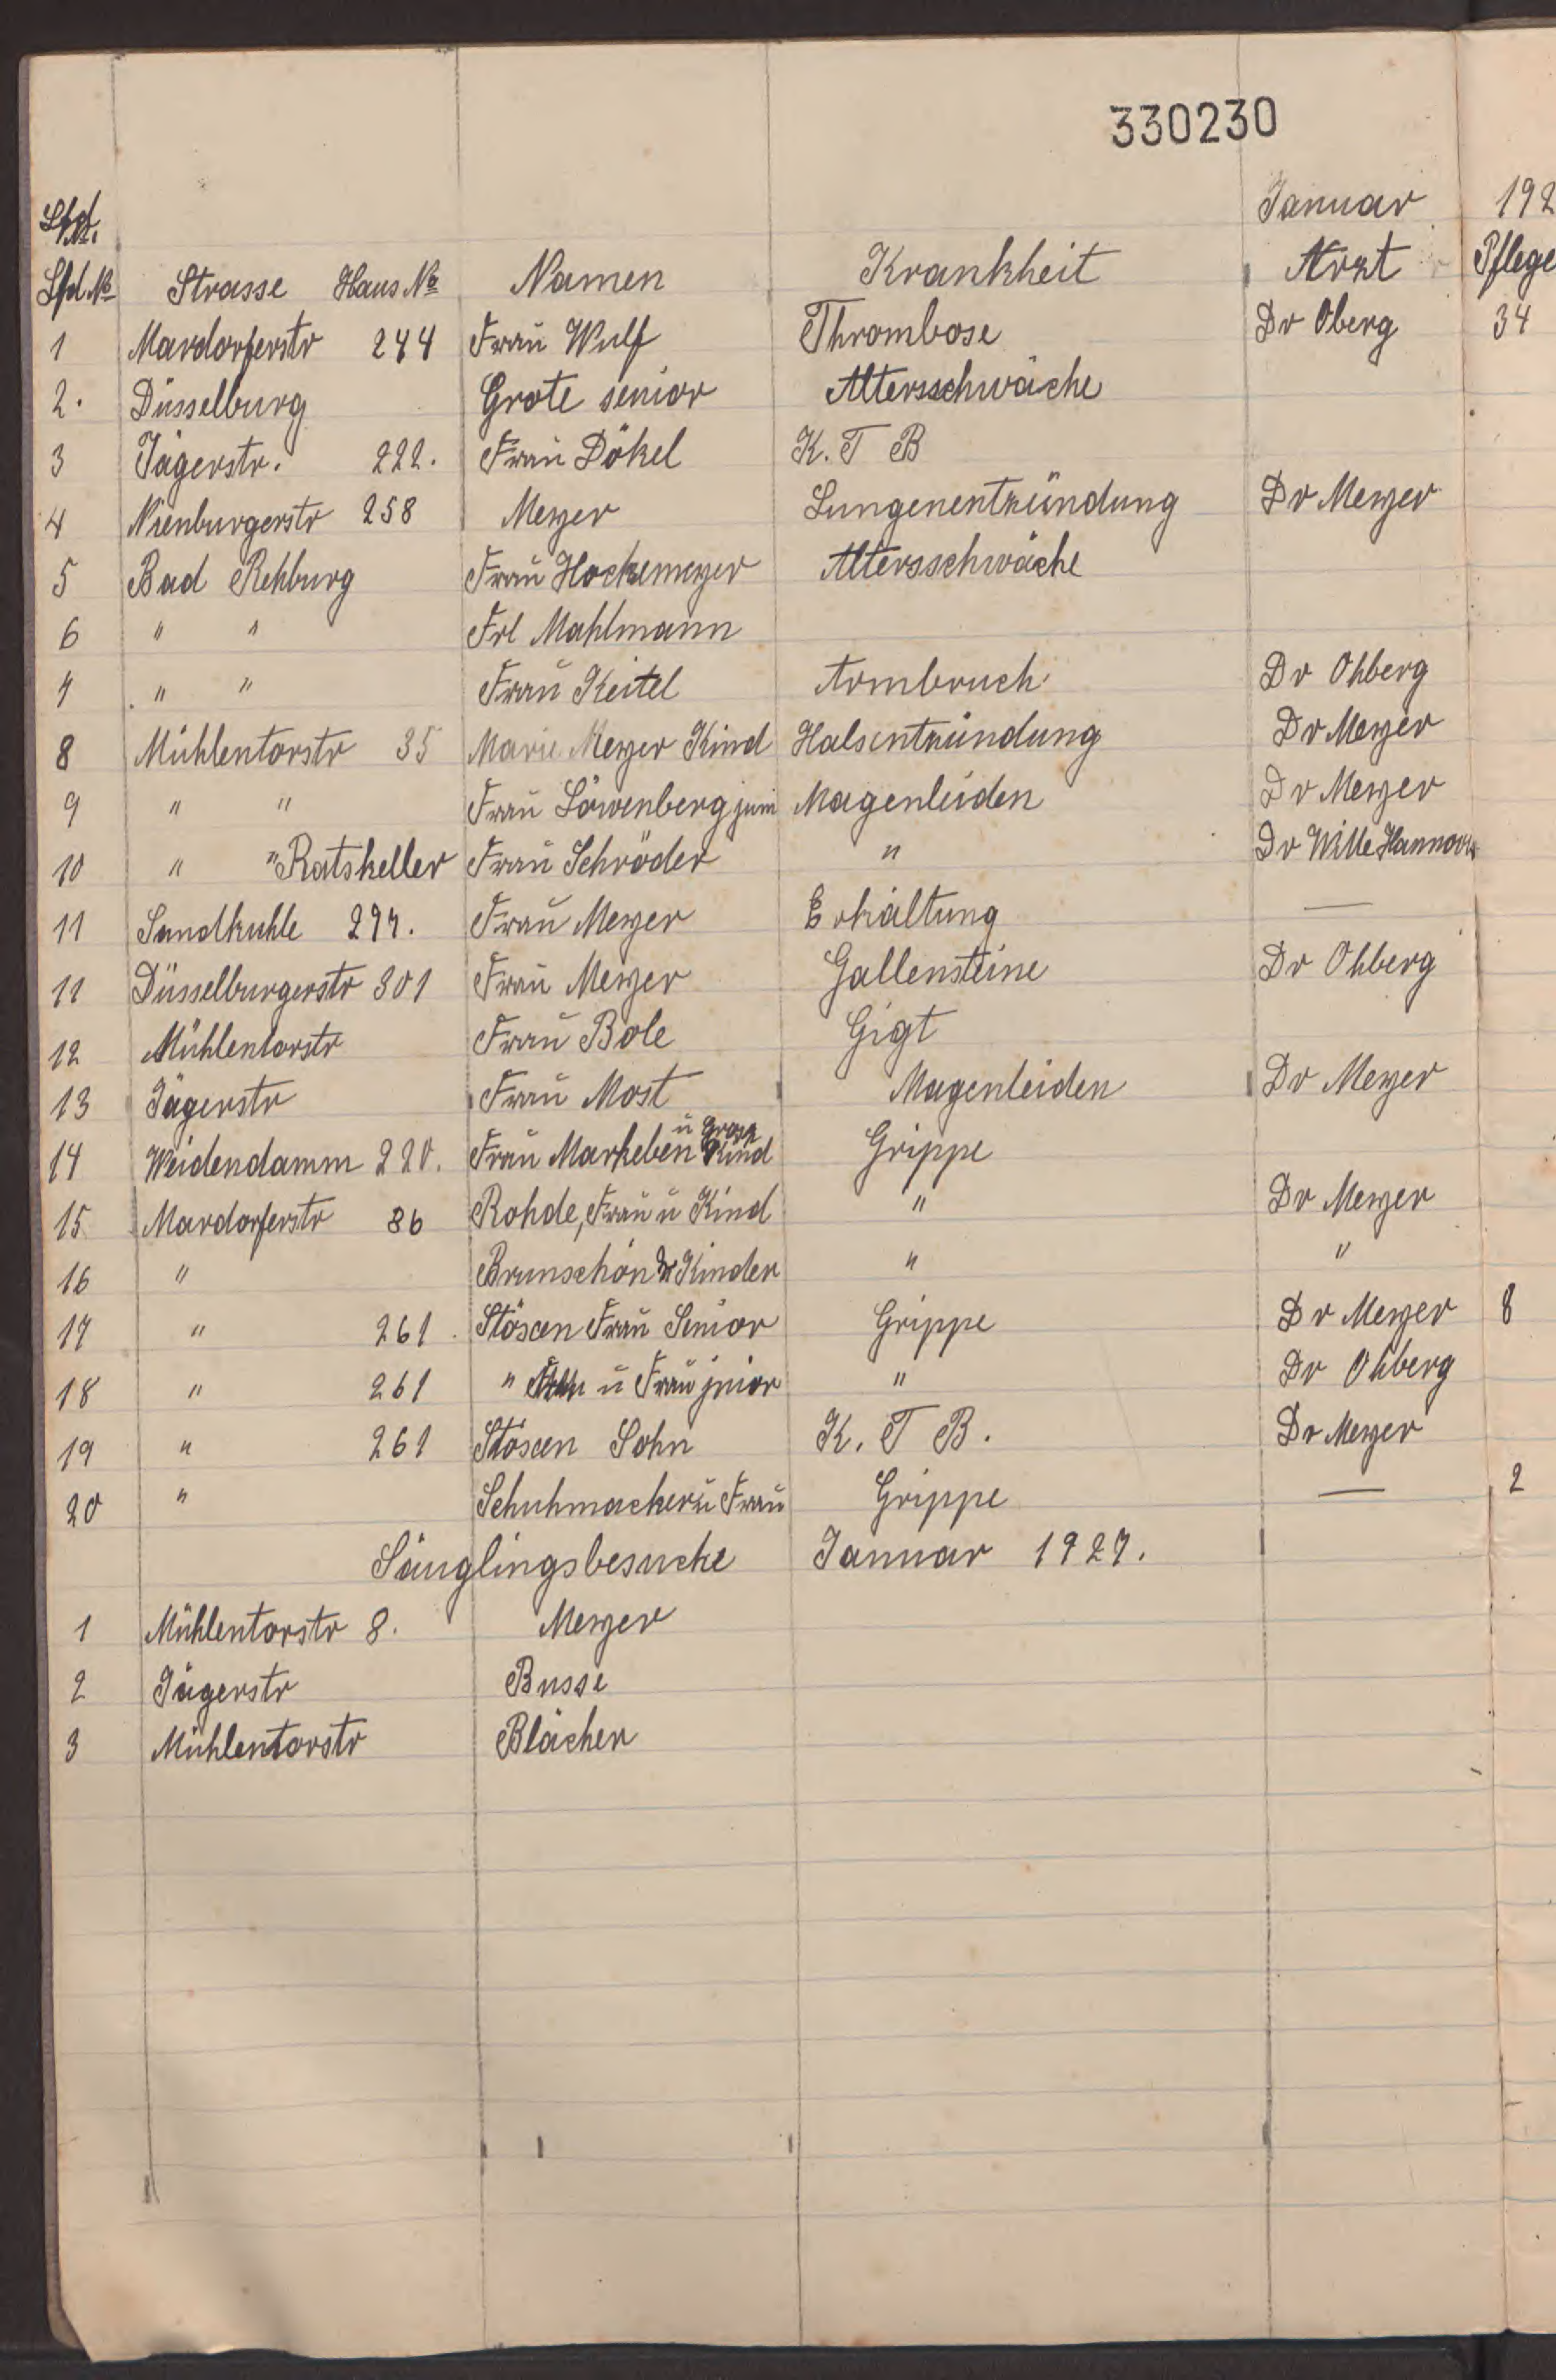 330230
Lfd. Januar 192
Lfd № Strasse Haus № Namen Krankheit Arzt Pflege
1 Mardorferstr 244 Frau Wulf Thrombose Dr Oberg 34
2. Düsselburg Grote senior Altersschwäche
3 Jägerstr. 222. Frau Dökel K. T B
4 Nienburgerstr 258 Meyer Lungenentzündung Dr Meyer
5 Bad Rehburg Frau Hockemeyer Altersschwäche
6 " " Frl Mahlmann
7 " " Frau Keitel Armbruch Dr Ohberg
8 Mühlentorstr 35 Marie Meyer Kind Halsentzündung Dr Meyer
9 " " Frau Löwenberg juni Magenleiden Dr Meyer
10 " " Ratskeller Frau Schröder " Dr Wille Hannover
11 Sandkuhle 297. Frau Meyer Erkältung —
11 Düsselburgerstr 301 Frau Meyer Gallensteine Dr Ohberg
12 Mühlentorstr Frau Bole Gigt
13 Jägerstr Frau Most Magenleiden Dr Meyer
14 Weidendamm 220. Frau Markeben u Kind Grippe
15 Mardorferstr 86 Rohde, Frau u Kind " Dr Meyer
16 " Brunschön Kinder " "
17 " 261 Stöxen Frau Senior Grippe Dr Meyer 8
18 " 261 " u Frau junior " Dr Ohberg
19 " 261 Stöxen Sohn K. T B. Dr Meyer
20 " Schuhmacher u Frau Grippe — 2
Säuglingsbesuche Januar 1927.
1 Mühlentorstr 8. Meyer
2 Jägerstr Busse
3 Mühlentorstr Blächer